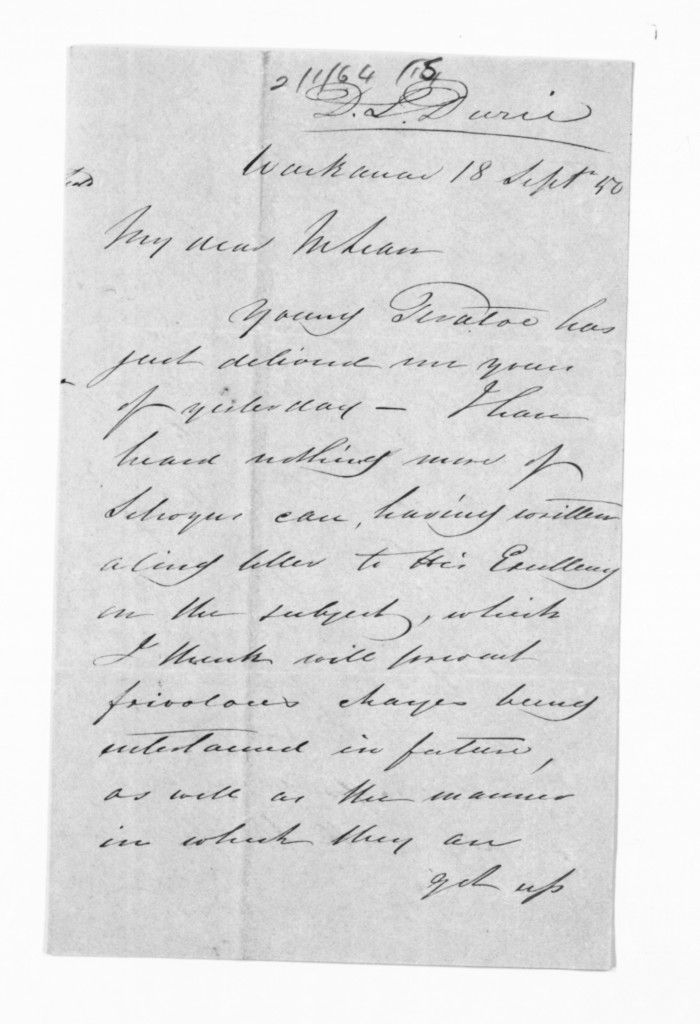 2/1/64 (15)
D. S. Durie
18 Sept 50
My dear McLean
Young has
just delivered me yours
of yesterday — I have
heard nothing more of
case, having written
a long letter to His Excellency
on the subject, which
I think will prevent
frivolous charges being
entertained in future,
as well as the manner
in which they are
got up